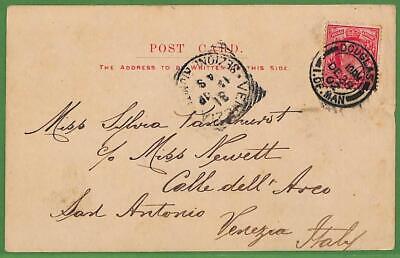 POST CARD.
THE ADDRESS TO BE WRITTEN ON THIS SIDE.
DOUGLAS
I. OF MAN
Miss Sylvia Pankhurst
c/o Miss Newett
Calle dell' Arco
San Antonio
Venezia
Italy